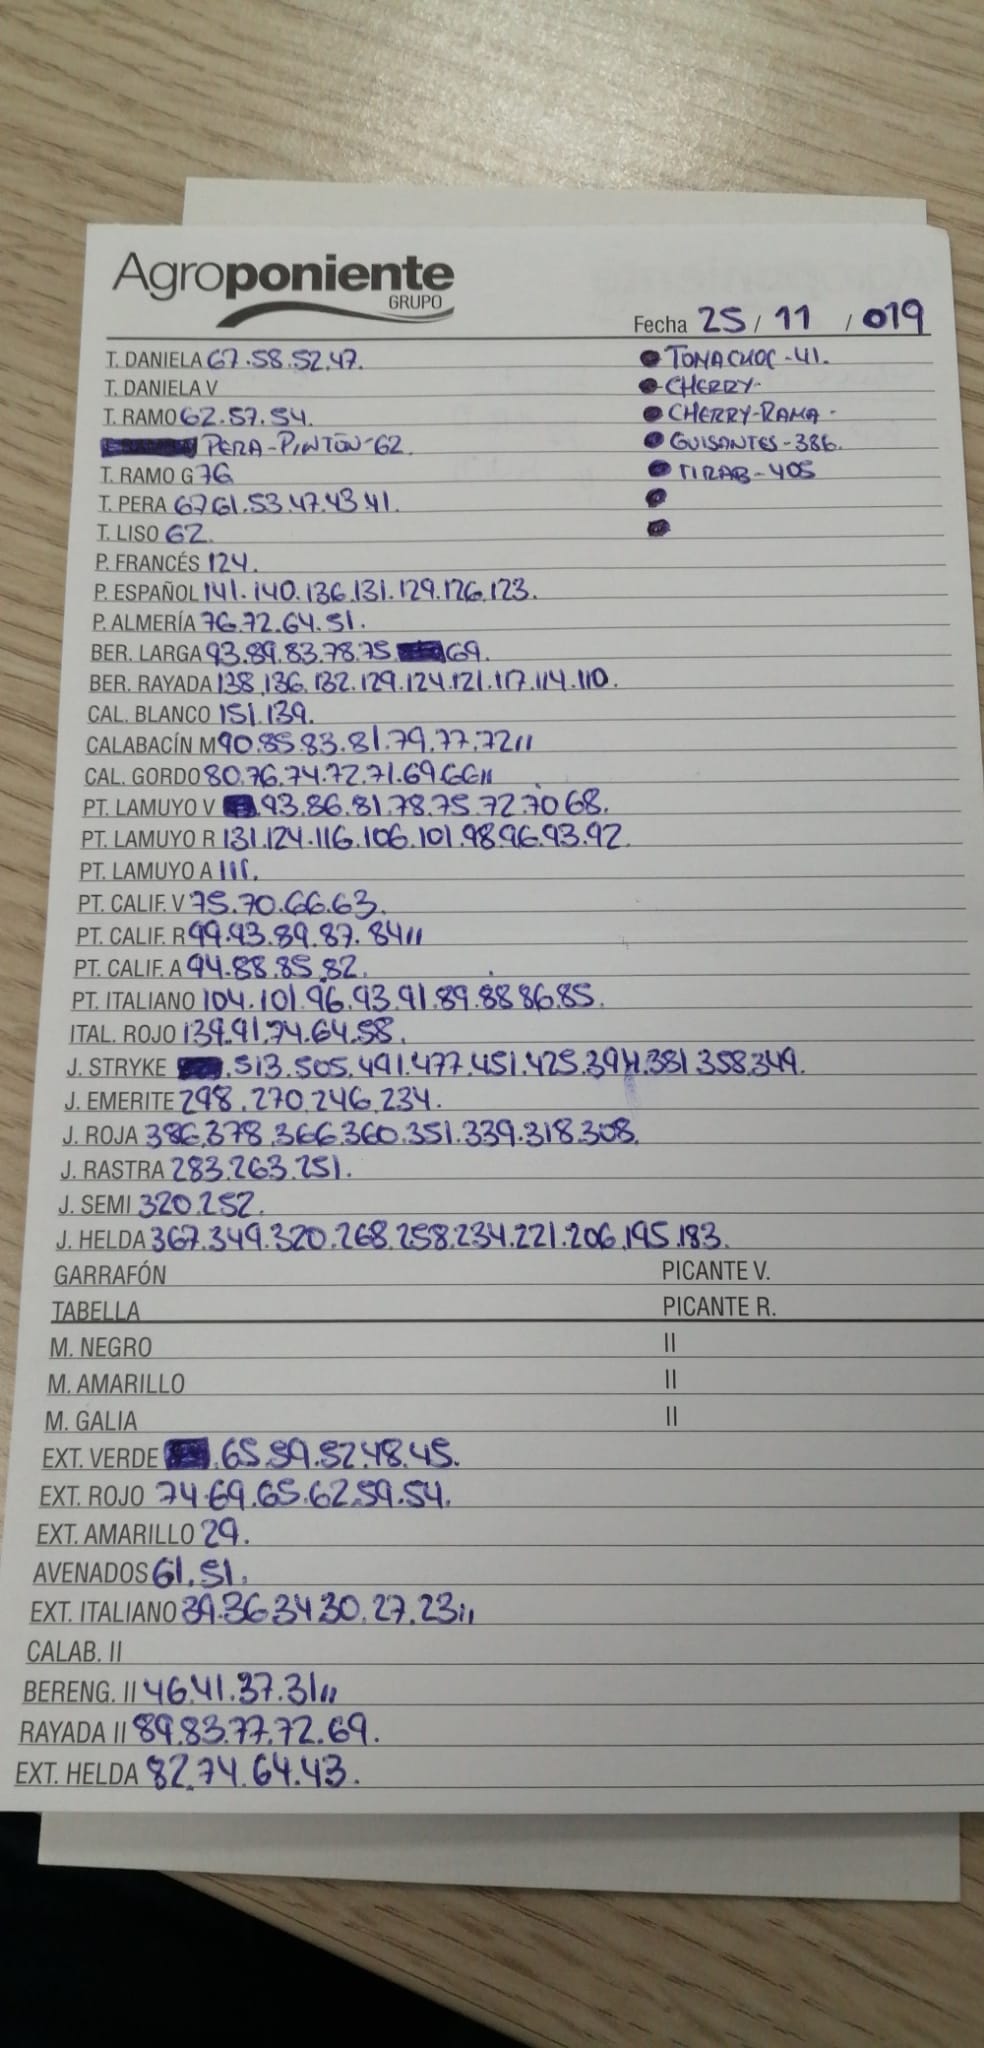 Agroponiente
GRUPO
Fecha 25 / 11 / 019
T. DANIELA 67.58.52.47.
TOMACHOC-41.
T. DANIELA V
CHERRY-
T. RAMO 62.57.54.
CHERRY-RAMA-
PERA-PINTÓN-62.
GUISANTES-386.
T. RAMO G 76
TIRAB-405
T. PERA 67.61.53.47.43.41.
T. LISO 62.
P. FRANCÉS 124.
P. ESPAÑOL 141.140.136.131.129.126.123.
P. ALMERÍA 76.72.64.51.
BER. LARGA 93.89.83.78.75. 69.
BER. RAYADA 138.136.132.129.124.121.117.114.110.
CAL. BLANCO 151.139.
CALABACÍN M 90.85.83.81.79.77.72 11
CAL. GORDO 80.76.74.72.71.69.66 11
PT. LAMUYO V .93.86.81.78.75.72.70 68.
PT. LAMUYO R 131.124.116.106.101.98.96.93.92.
PT. LAMUYO A 111.
PT. CALIF. V 75.70.66.63.
PT. CALIF. R 99.93.89.87.84 11
PT. CALIF. A 94.88.85.82.
PT. ITALIANO 104.101.96.93.91.89.88 86.85.
ITAL. ROJO 139.91.74.64.58.
J. STRYKE .513.505.491.477.451.425.394.381 358.349.
J. EMERITE 298.270.246.234.
J. ROJA 386.378.366.360.351.339.318.308.
J. RASTRA 283.263.251.
J. SEMI 320.252.
J. HELDA 367.349.320.268.258.234.221.206.195.183.
GARRAFÓN PICANTE V.
TABELLA PICANTE R.
M. NEGRO II
M. AMARILLO II
M. GALIA II
EXT. VERDE .65.59.52.48.45.
EXT. ROJO 74.69.65.62.59.54.
EXT. AMARILLO 29.
AVENADOS 61.51.
EXT. ITALIANO 39.36 34 30.27.23 11
CALAB. II
BERENG. II 46.41.37.31 11
RAYADA II 89.83.77.72.69.
EXT. HELDA 82.74.64.43.